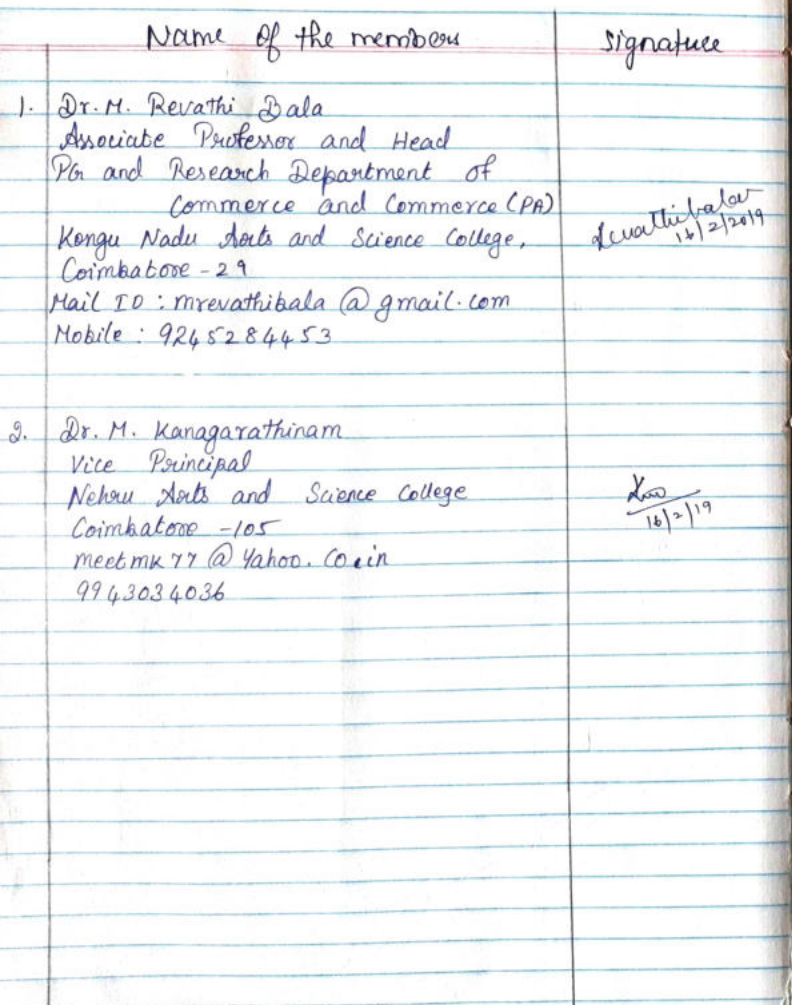 Name of the members
Signature
1. Dr. M. Revathi Bala
Associate Professor and Head
PG and Research Department of
Commerce and Commerce (PA)
Kongu Nadu Arts and Science College,
Coimbatore - 29
Mail ID : mrevathibala @ gmail.com
Mobile : 9245284453
Revathibala
16/2/2019
2. Dr. M. Kanagarathinam
Vice Principal
Nehru Arts and Science College
Coimbatore -105
meetmk77 @ Yahoo. Co.in
9943034036
16/2/19